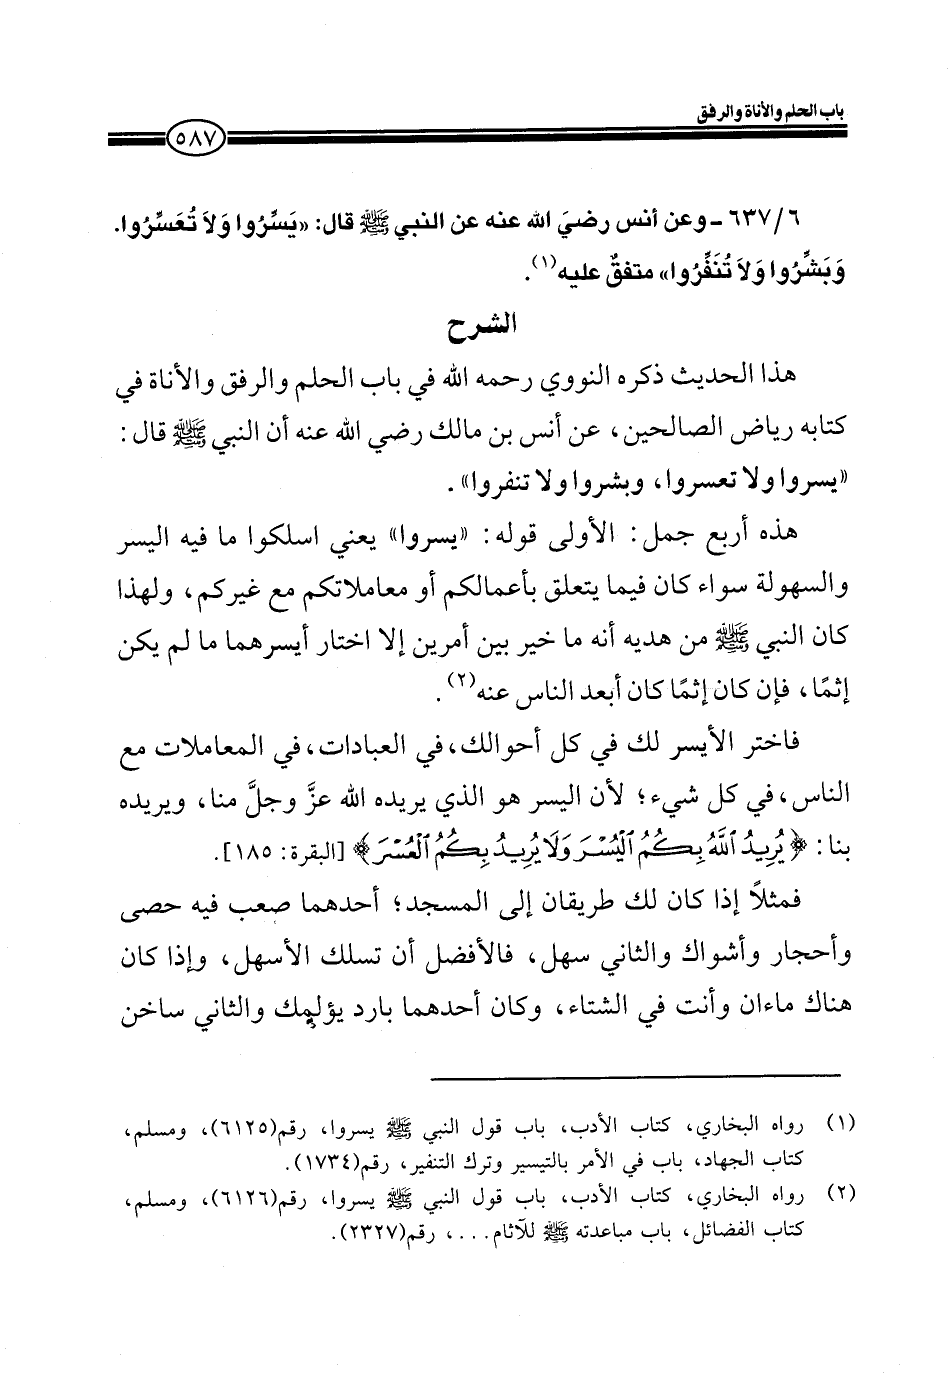 باب الحلم والأناة والرفق
٥٨٧
٦/ ٦٣٧ - وعن أنس رضيَ الله عنه عن النبي ﷺ قال: «يَسِّرُوا وَلاَ تُعَسِّرُوا.
وَبَشِّرُوا وَلاَ تُنَفِّرُوا» متفقٌ عليه(١).
الشرح
هذا الحديث ذكره النووي رحمه الله في باب الحلم والرفق والأناة في
كتابه رياض الصالحين، عن أنس بن مالك رضي الله عنه أن النبي ﷺ قال:
«يسروا ولا تعسروا، وبشروا ولا تنفروا».
هذه أربع جمل: الأولى قوله: «يسروا» يعني اسلكوا ما فيه اليسر
والسهولة سواء كان فيما يتعلق بأعمالكم أو معاملاتكم مع غيركم، ولهذا
كان النبي ﷺ من هديه أنه ما خير بين أمرين إلا اختار أيسرهما ما لم يكن
إثمًا، فإن كان إثمًا كان أبعد الناس عنه(٢).
فاختر الأيسر لك في كل أحوالك، في العبادات، في المعاملات مع
الناس، في كل شيء؛ لأن اليسر هو الذي يريده الله عزَّ وجلَّ منا، ويريده
بنا: ﴿يُرِيدُ ٱللَّهُ بِكُمُ ٱلۡيُسۡرَ وَلَا يُرِيدُ بِكُمُ ٱلۡعُسۡرَ﴾ [البقرة: ١٨٥].
فمثلاً إذا كان لك طريقان إلى المسجد؛ أحدهما صعب فيه حصى
وأحجار وأشواك والثاني سهل، فالأفضل أن تسلك الأسهل، وإذا كان
هناك ماءان وأنت في الشتاء، وكان أحدهما بارد يؤلمك والثاني ساخن
(١) رواه البخاري، كتاب الأدب، باب قول النبي ﷺ يسروا، رقم(٦١٢٥)، ومسلم،
كتاب الجهاد، باب في الأمر بالتيسير وترك التنفير، رقم(١٧٣٤).
(٢) رواه البخاري، كتاب الأدب، باب قول النبي ﷺ يسروا، رقم(٦١٢٦)، ومسلم،
كتاب الفضائل، باب مباعدته ﷺ للآثام ...، رقم(٢٣٢٧).